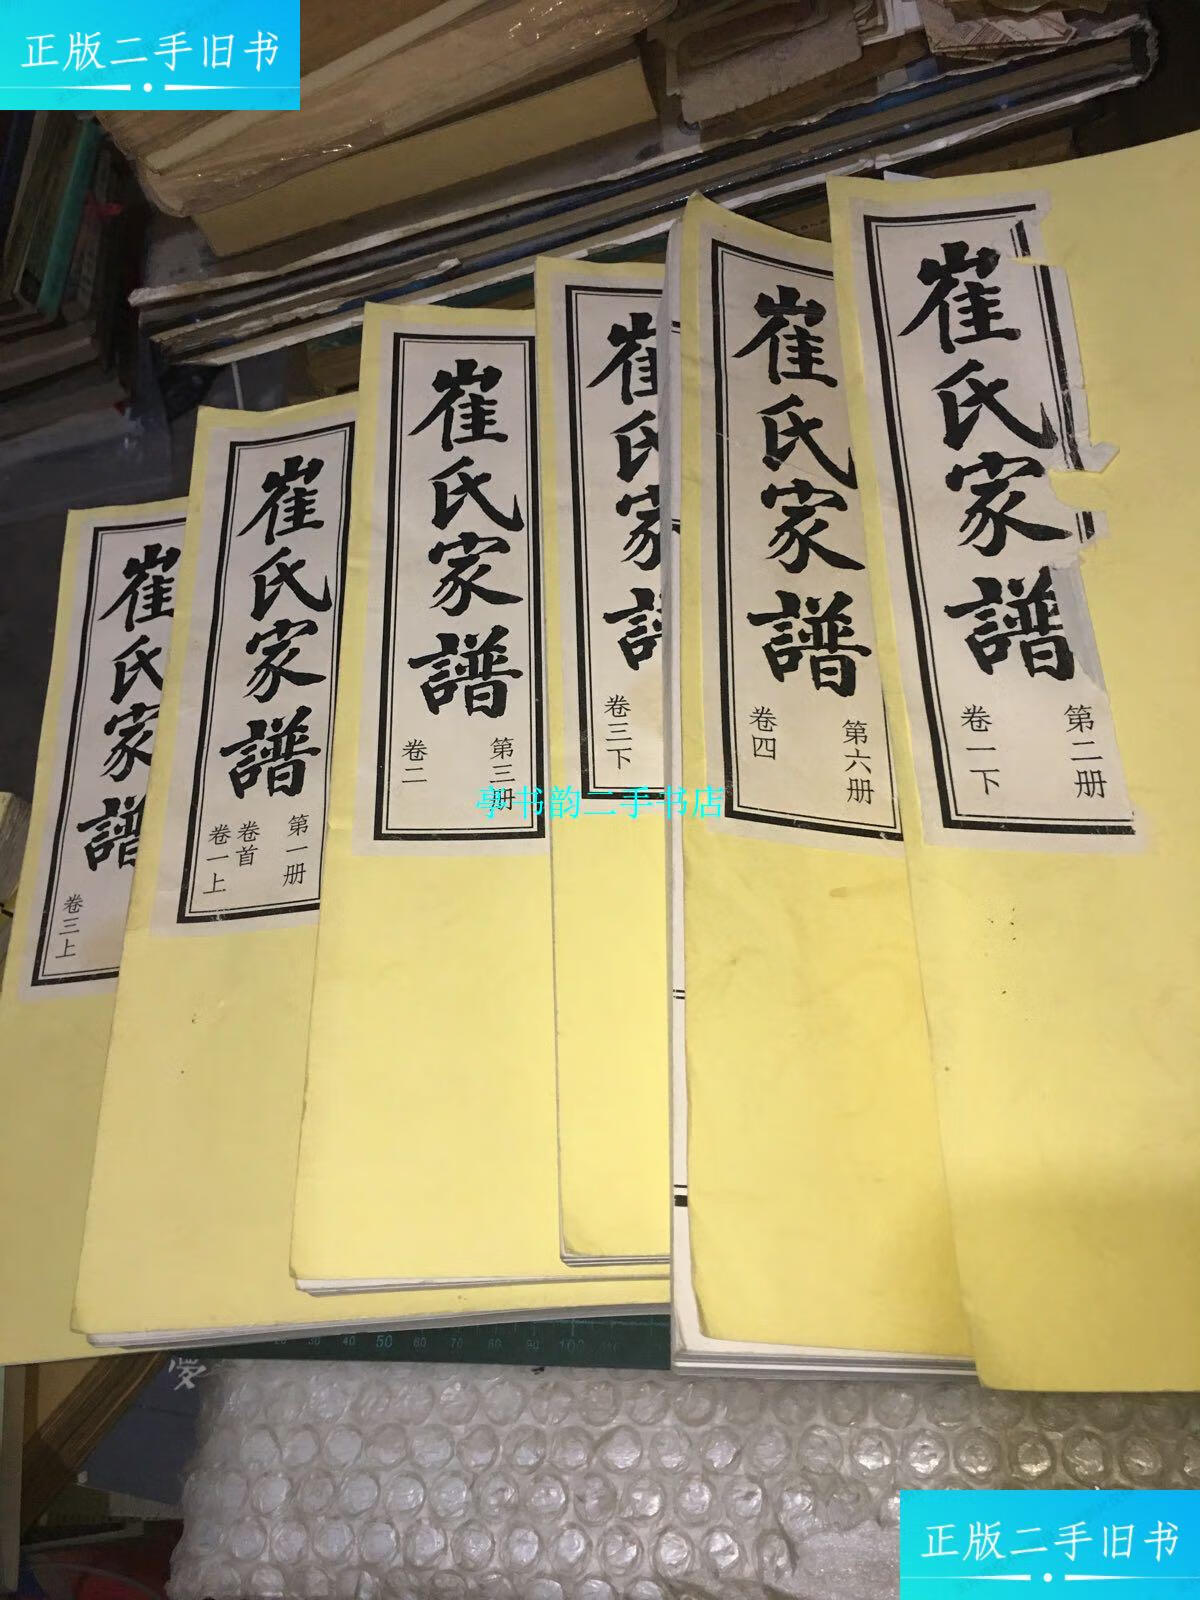 正版二手旧书
崔氏家譜
卷三上
崔氏家譜
第一册
卷首
卷一上
崔氏家譜
第三册
卷二
崔氏家譜
卷三下
崔氏家譜
第六册
卷四
崔氏家譜
第二册
卷一下
亭书韵二手书店
50
60
70
80
90
100
正版二手旧书